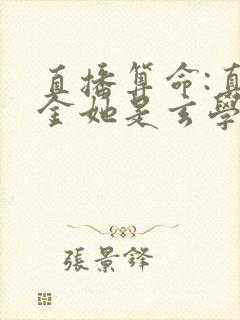 直播算命:真
金她是玄學
張景鋒